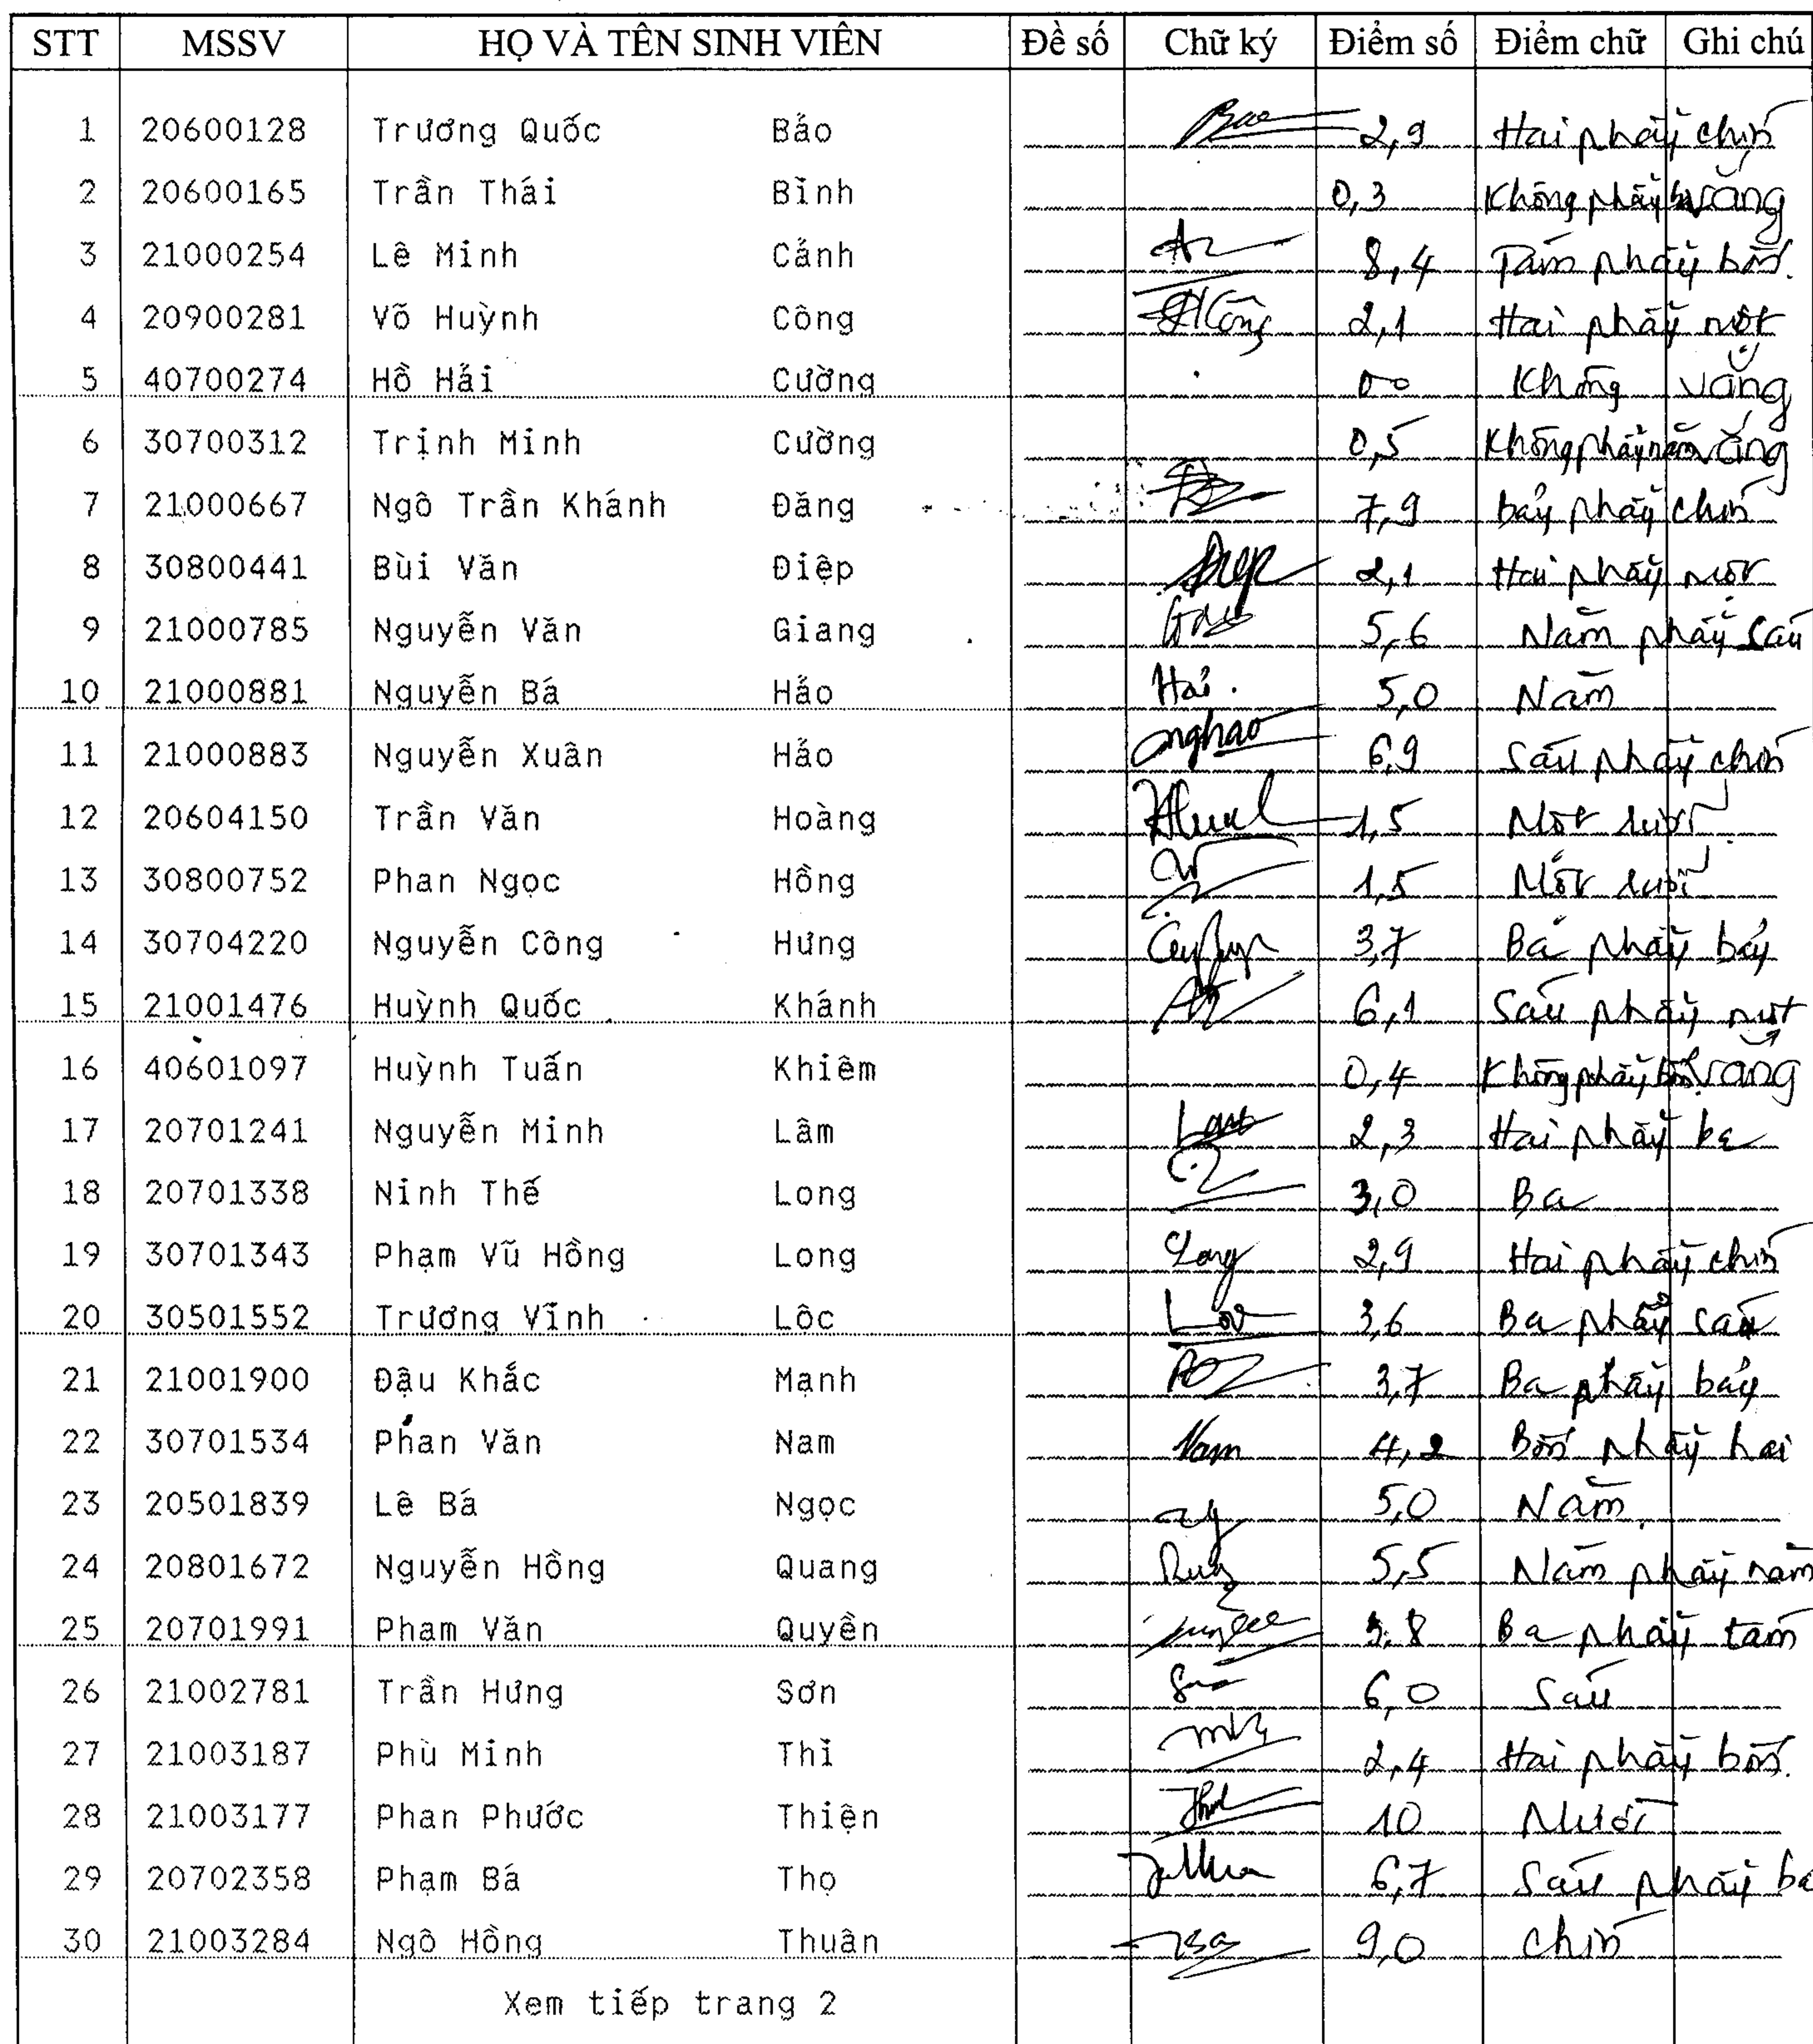 STT MSSV HỌ VÀ TÊN SINH VIÊN Đề số Chữ ký Điểm số Điểm chữ Ghi chú
1 20600128 Trương Quốc Bảo 2,9 Hai phẩy chín
2 20600165 Trần Thái Bình 0,3 Không phẩy ba vắng
3 21000254 Lê Minh Cảnh 8,4 Tám phẩy bốn.
4 20900281 Võ Huỳnh Công 2,1 Hai phẩy một
5 40700274 Hồ Hải Cường 00 Không vắng
6 30700312 Trịnh Minh Cường 0,5 Không phẩy năm vắng
7 21000667 Ngô Trần Khánh Đăng 7,9 bảy phẩy chín
8 30800441 Bùi Văn Điệp Điệp 2,1 Hai phẩy một
9 21000785 Nguyễn Văn Giang 5,6 Năm phẩy sáu
10 21000881 Nguyễn Bá Hảo 5,0 Năm
11 21000883 Nguyễn Xuân Hảo nghao 6,9 Sáu phẩy chín
12 20604150 Trần Văn Hoàng 1,5 Một rưỡi
13 30800752 Phan Ngọc Hồng 1,5 Một rưỡi
14 30704220 Nguyễn Công Hưng 3,7 Ba phẩy bảy
15 21001476 Huỳnh Quốc Khánh 6,1 Sáu phẩy một
16 40601097 Huỳnh Tuấn Khiêm 0,4 Không phẩy bốn vắng
17 20701241 Nguyễn Minh Lâm 2,3 Hai phẩy ba
18 20701338 Ninh Thế Long 3,0 Ba
19 30701343 Phạm Vũ Hồng Long Long 2,9 Hai phẩy chín
20 30501552 Trương Vĩnh Lộc 3,6 Ba phẩy sáu
21 21001900 Đậu Khắc Mạnh 3,7 Ba phẩy bảy
22 30701534 Phan Văn Nam Nam 4,2 Bốn phẩy hai
23 20501839 Lê Bá Ngọc 5,0 Năm
24 20801672 Nguyễn Hồng Quang 5,5 Năm phẩy năm
25 20701991 Phạm Văn Quyền 3,8 Ba phẩy tám
26 21002781 Trần Hưng Sơn 6,0 Sáu
27 21003187 Phù Minh Thỉ 2,4 Hai phẩy bốn.
28 21003177 Phan Phước Thiện 10 Mười
29 20702358 Phạm Bá Thọ 6,7 Sáu phẩy
30 21003284 Ngô Hồng Thuân 9,0 chín
Xem tiếp trang 2